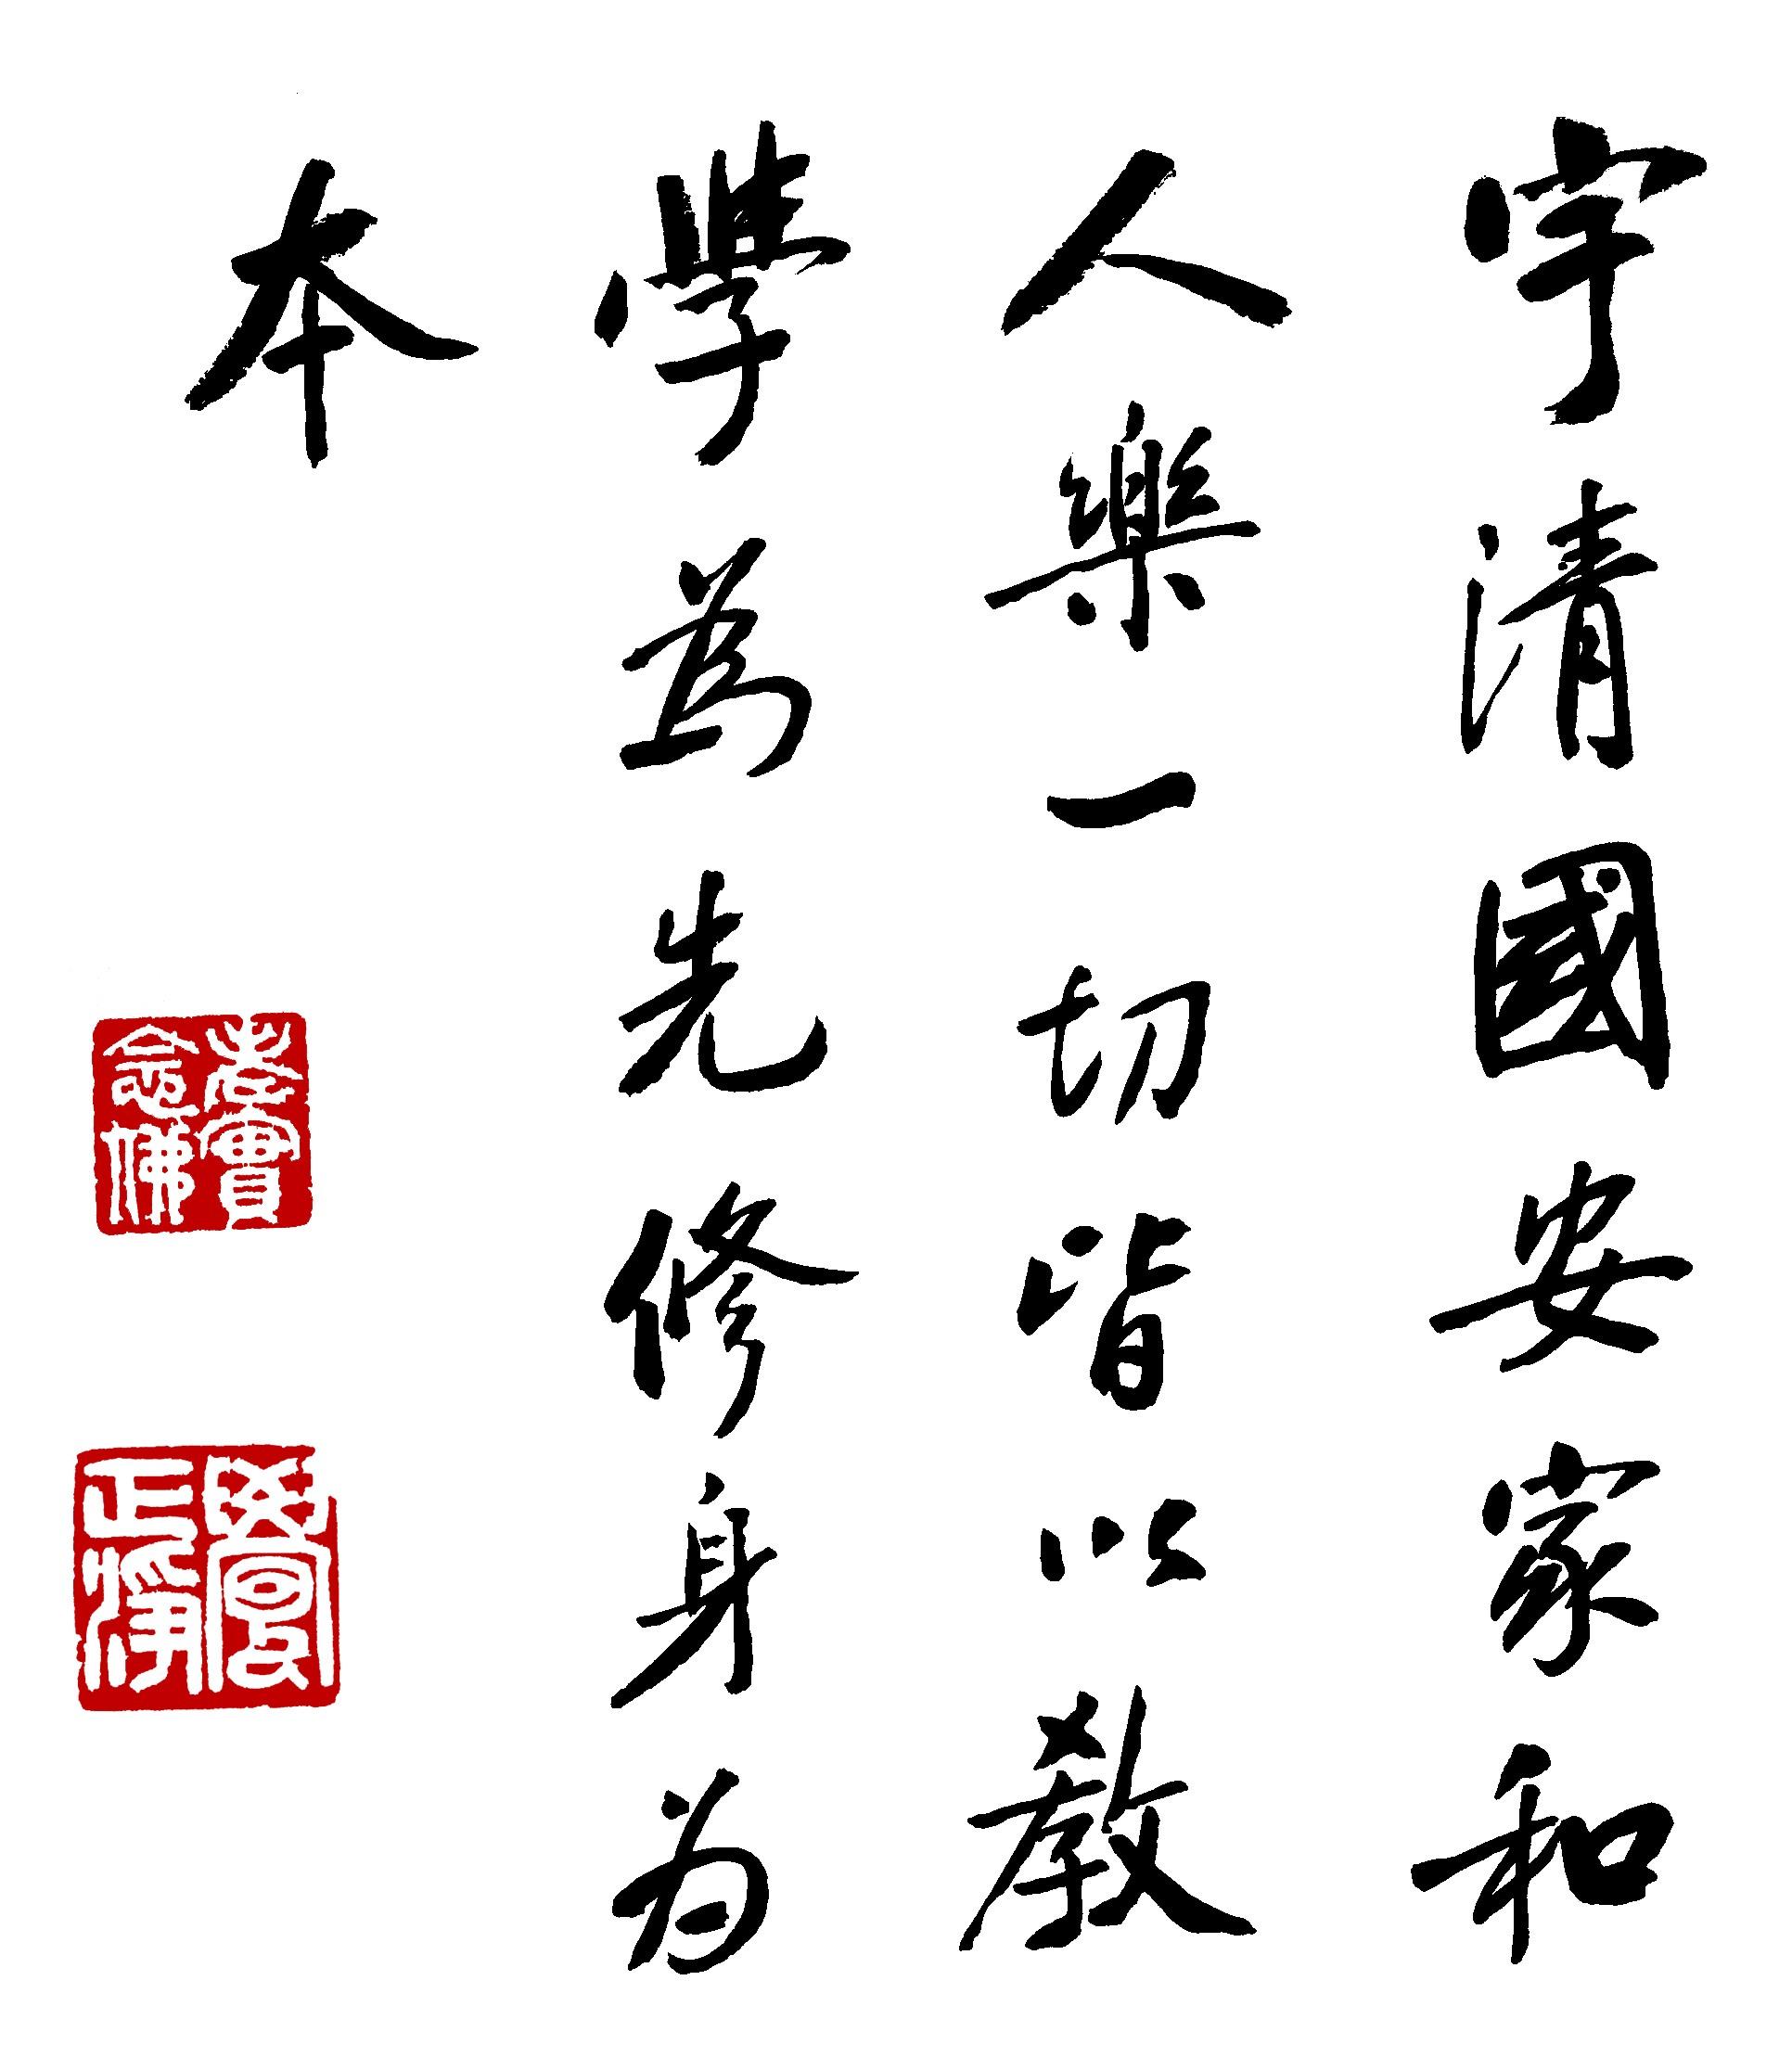 宇清國安家和
人樂一切皆以教
學為先修身为
本
老實
念佛
正淨